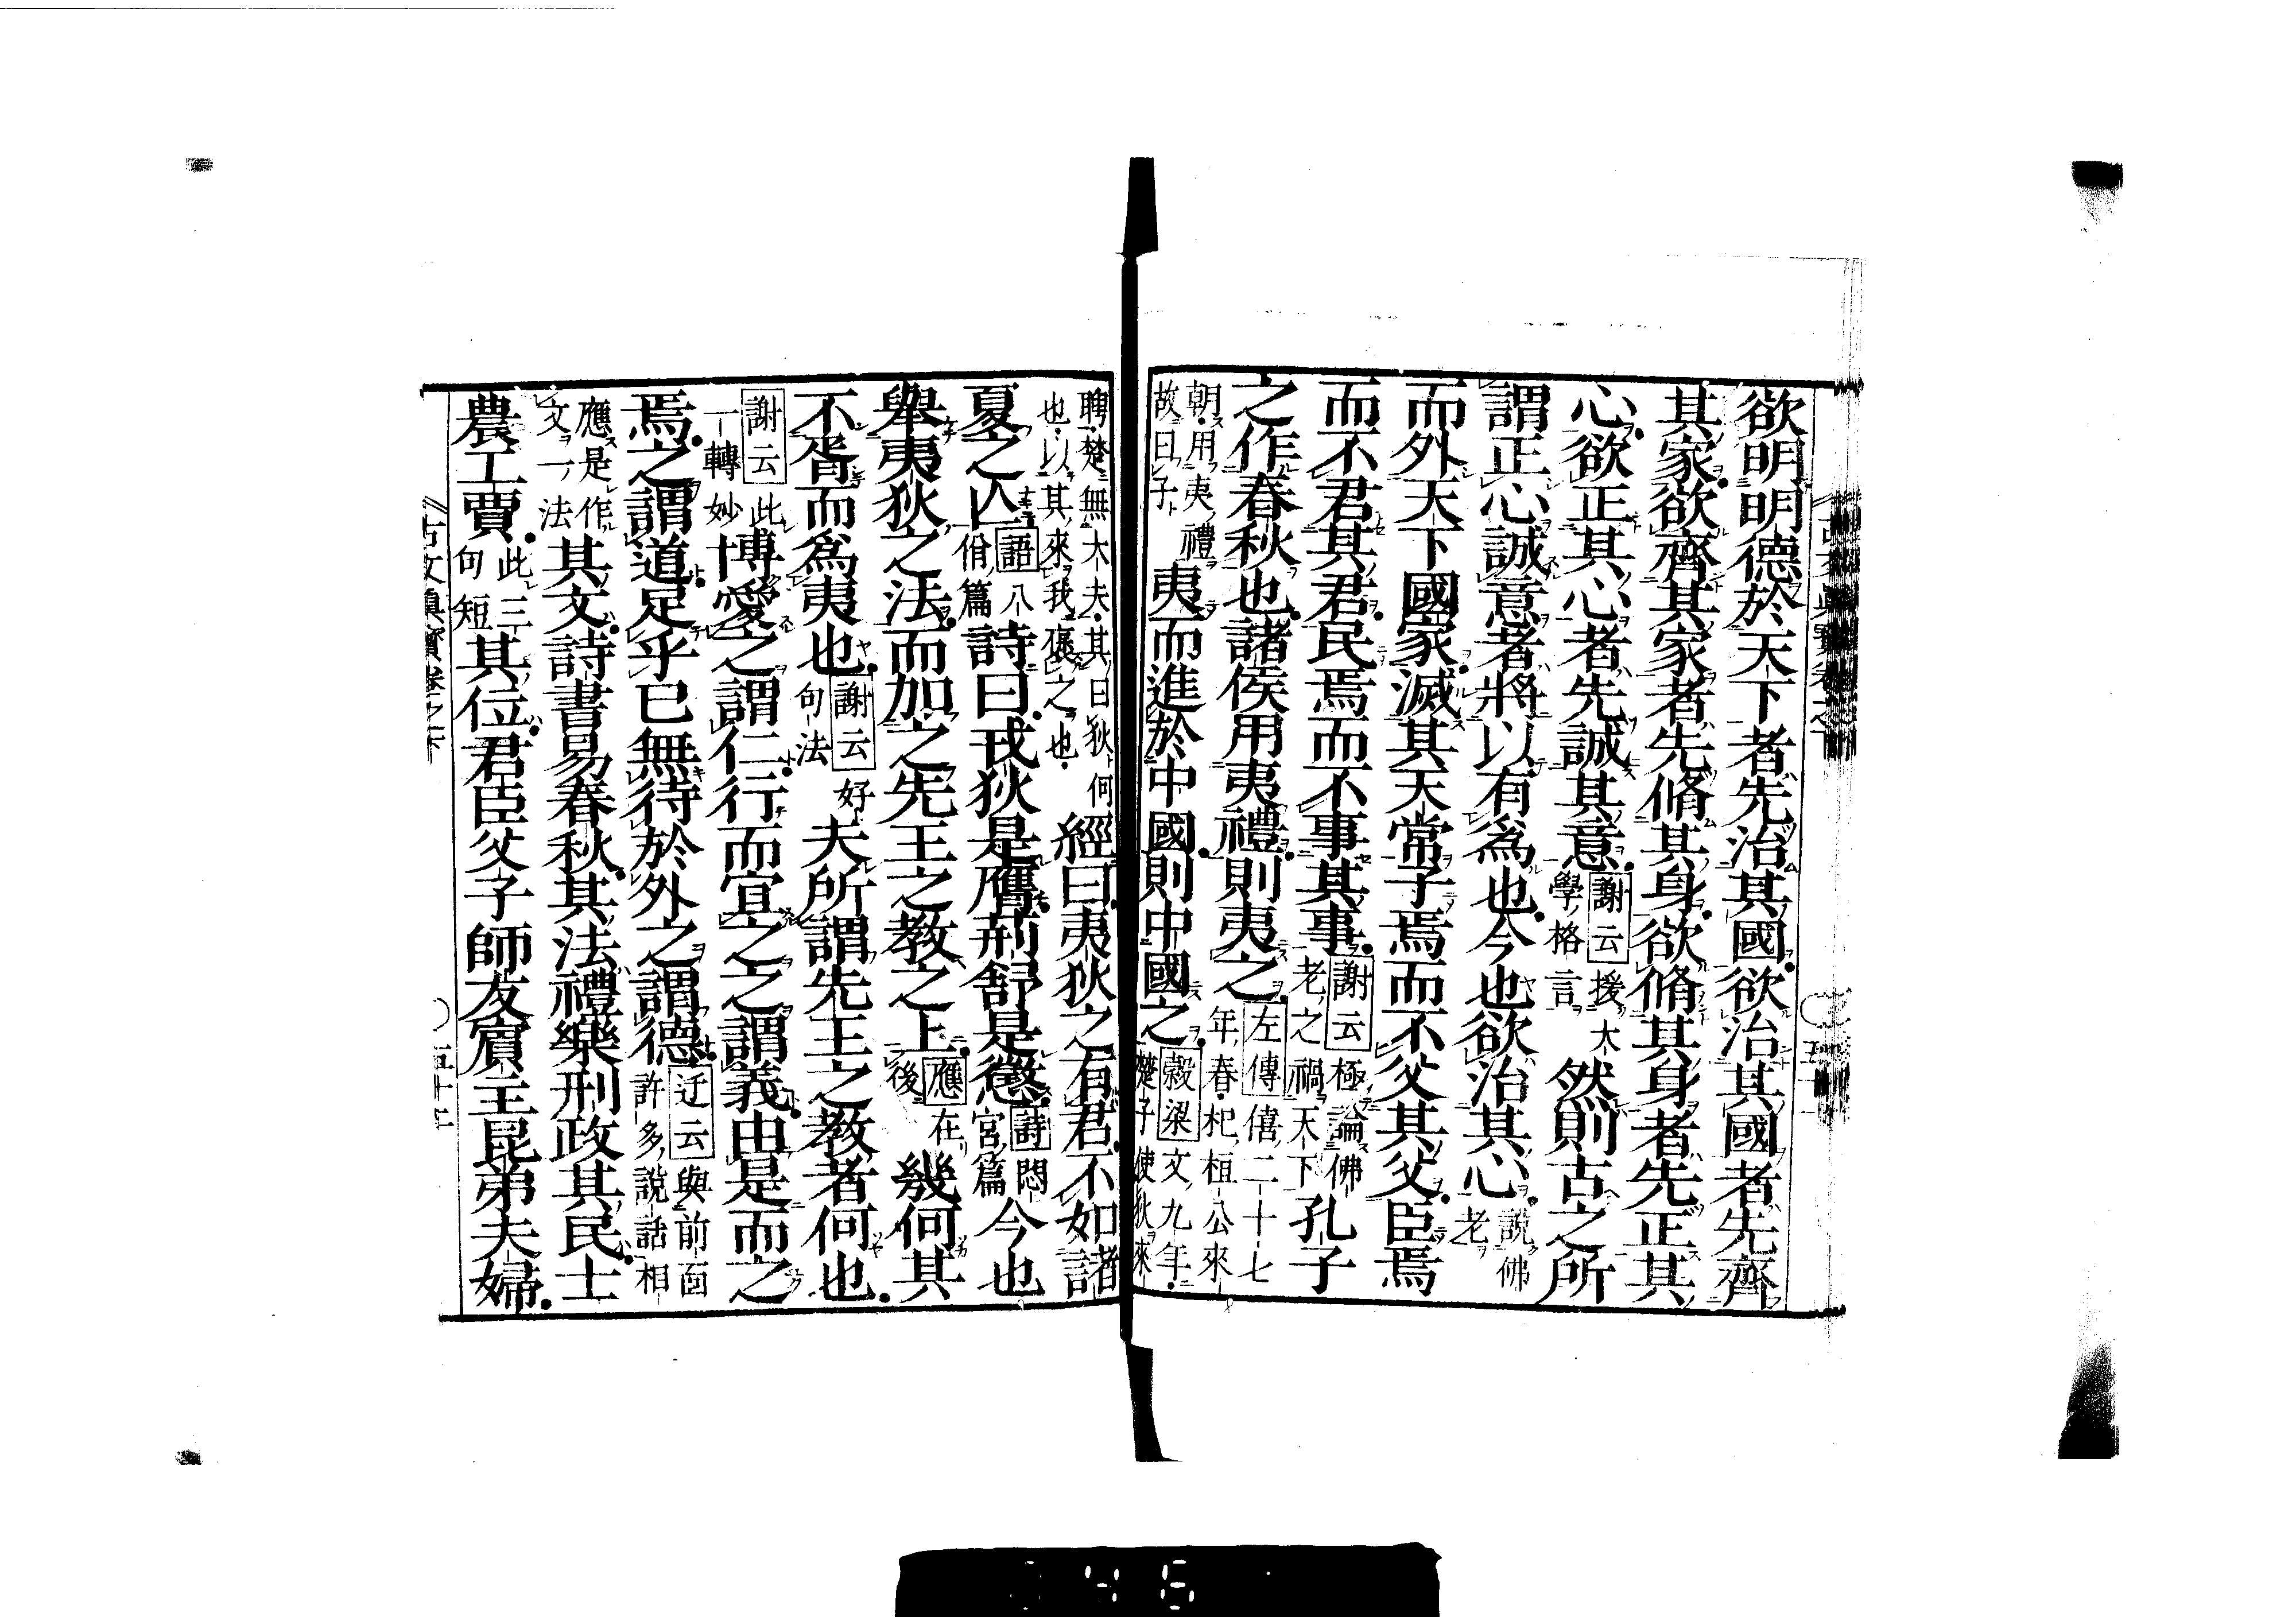 欲明明德於天下者先治其國欲治其國者先齊
其家欲齊其家者先脩其身欲脩其身者先正其
心欲正其心者先誠其意謝云援大學格言然則古之所
謂正心誠意者將以有爲也今也欲治其心說佛老
而外天下國家滅其天常子焉而不父其父臣焉
而不君其君民焉而不事其事謝云極論佛老之禍天下孔子
之作春秋也諸侯用夷禮則夷之左傳僖二十七年春杞桓公來
朝用夷禮故曰子夷而進於中國則中國之穀梁文九年楚子使狄來
聘楚無大夫其曰狄何也以其來我褒之也經曰夷狄之有君不如諸
夏之亾語八佾篇詩曰戎狄是膺荊舒是懲詩閟宮篇今也
舉夷狄之法而加之先王之教之上應在後幾何其
不胥而爲夷也謝云好句法夫所謂先王之教者何也
謝云此一轉妙博愛之謂仁行而宜之之謂義由是而之
焉之謂道足乎已無待於外之謂德迂云與前面許多說話相
應是作文一法其文詩書易春秋其法禮樂刑政其民士
農工賈此三句短其位君臣父子師友賓主昆弟夫婦
古文眞寶卷之下
五十二